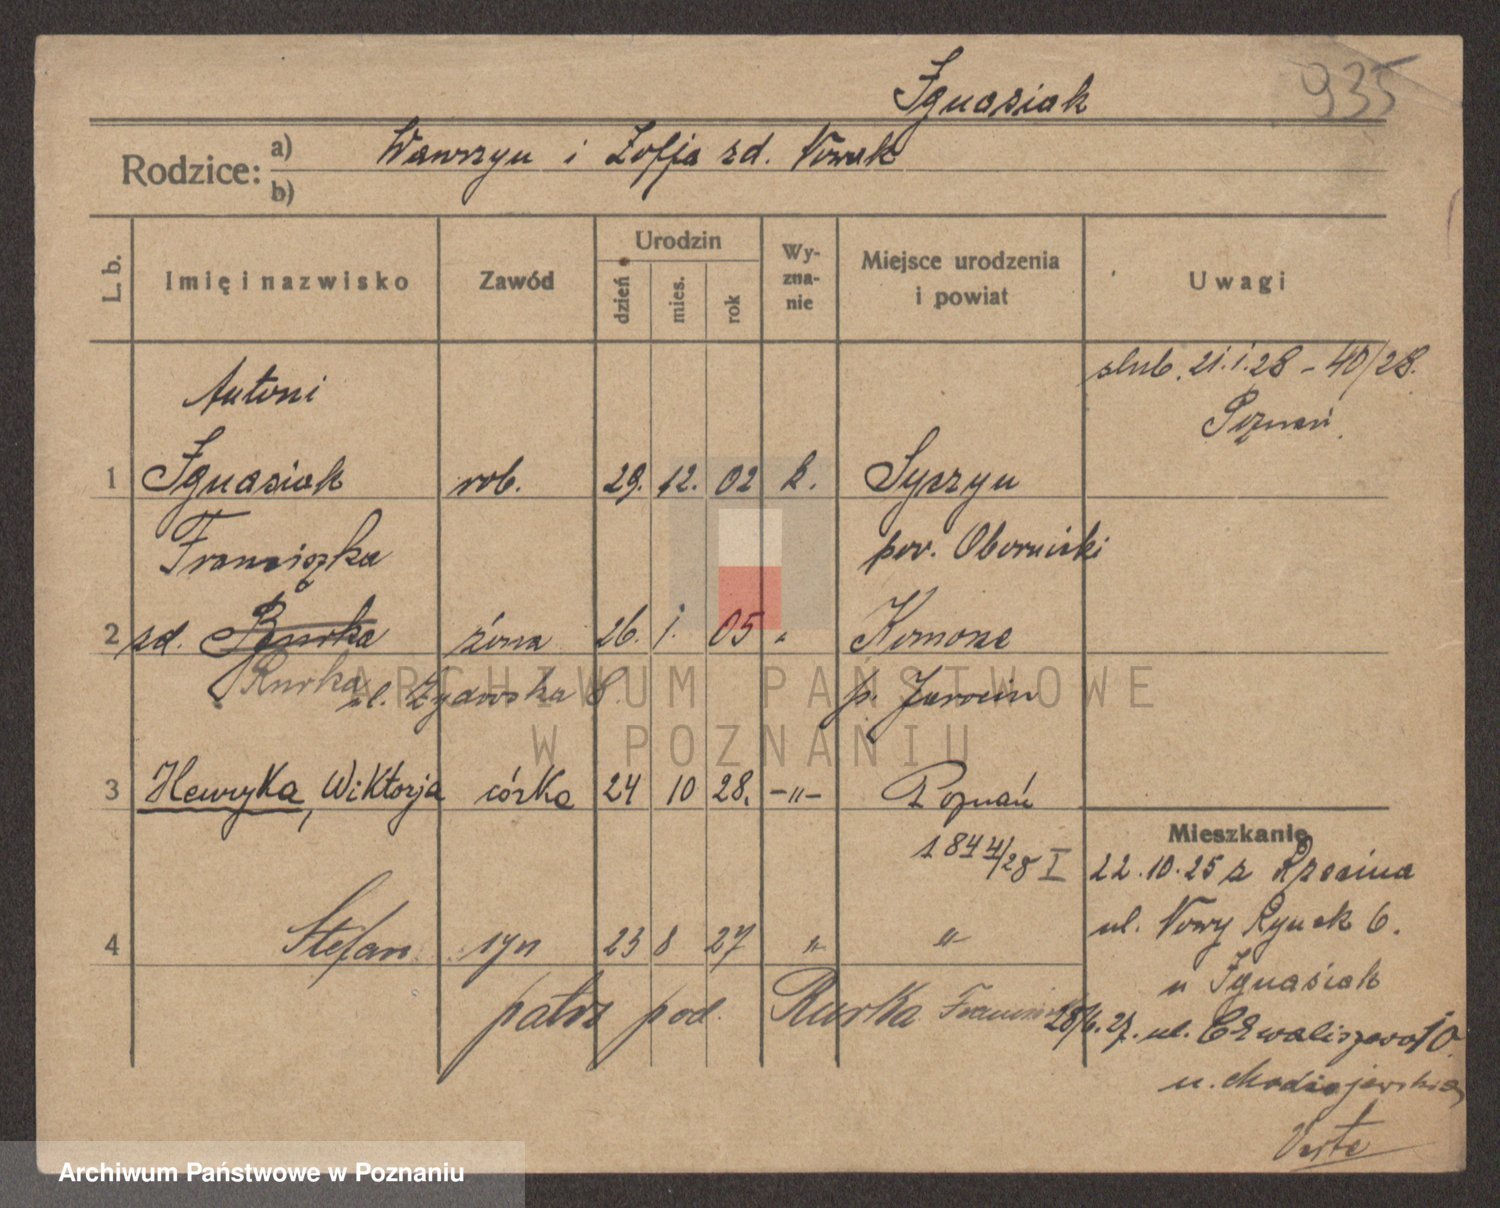 Ignasiak
935
Rodzice: a) Wawrzyn i Zofja zd. Nowak
b)
L. b.
Imię i nazwisko
Zawód
Urodzin
dzień
mies.
rok
Wy-
zna-
nie
Miejsce urodzenia
i powiat
Uwagi
ślub. 21.1.28 - 40/28.
Poznań
Antoni
1 Ignasiak rob. 29. 12. 02 k.
pow. Obornicki
Franciszka
2 zd. Burka żona 26. 1. 05 "
Rurka ul. Żydowska 8.
p. Jarocin
3 Henryka, Wiktorja córka 24 10 28. -"- Poznań
1844/28 I
4 Stefan syn 23 8 27 " "
patrz pod. Rurka
Mieszkanie
22.10.25 z Rzecina
ul. Nowy Rynek 6.
u Ignasiak
28/6.27. ul. Chwaliszewo 10.
Verte
ARCHIWUM PAŃSTWOWE
W POZNANIU
Archiwum Państwowe w Poznaniu